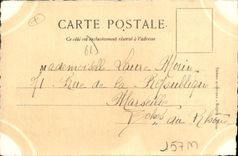 CARTE POSTALE
Ce côté est exclusivement réservé à l'adresse
Mademoiselle Laure Morin
71 Rue de la République
Marseille
du Rhône
J57M